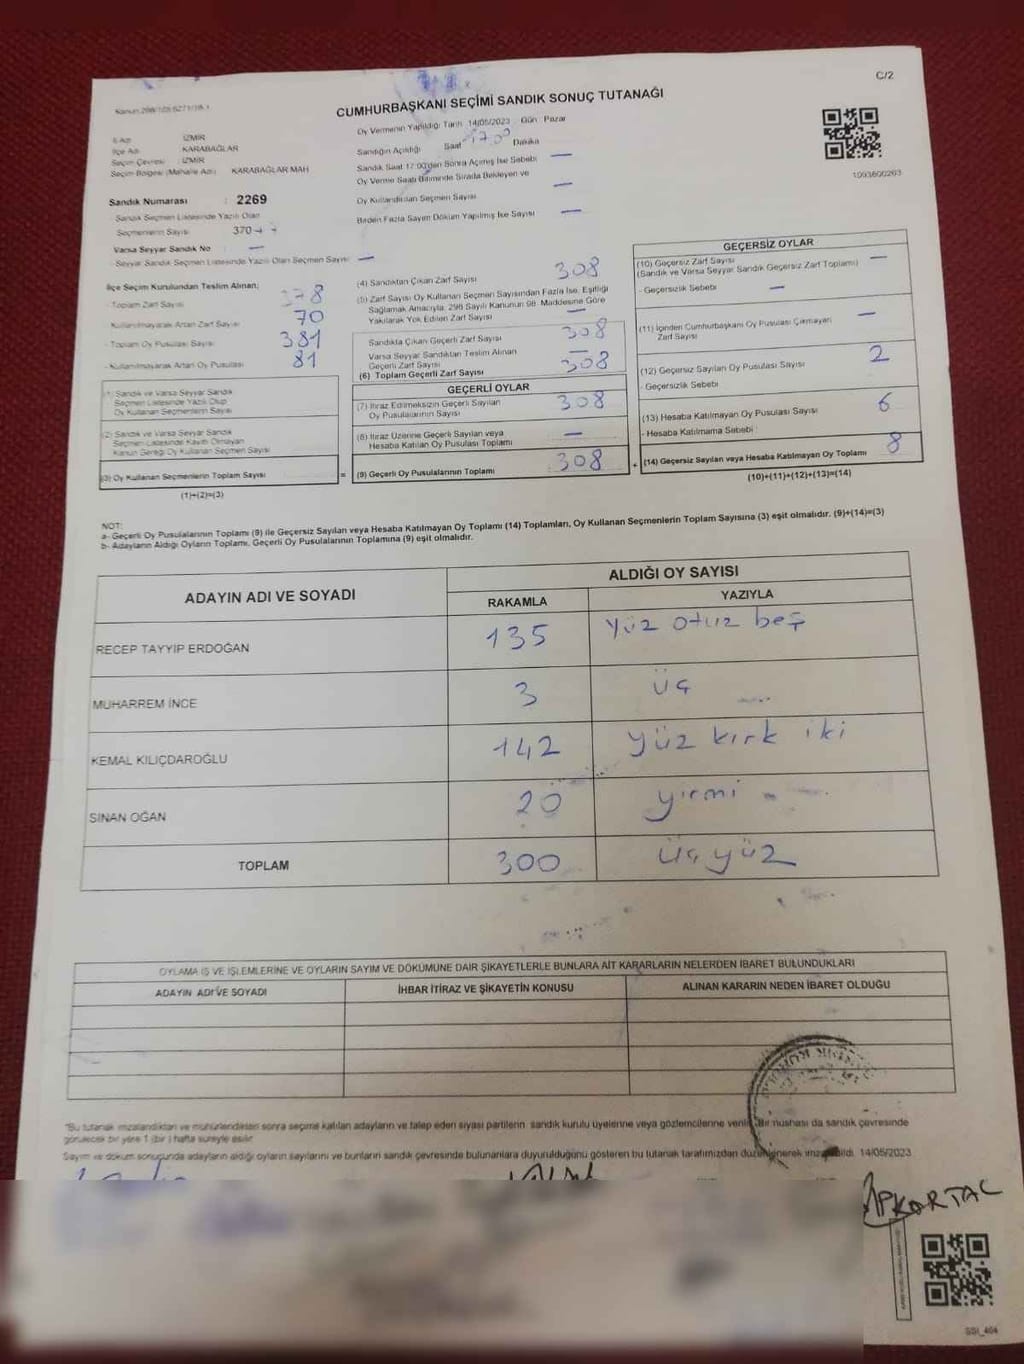 C/2
CUMHURBAŞKANI SEÇİMİ SANDIK SONUÇ TUTANAĞI
Oy Vermenin Yapıldığı Tarih 14/05/2023 Gün : Pazar
Sandığın Açıldığı Saat 17.00 Dakika
Sandık Saat 17:00'den Sonra Açılmış İse Sebebi —
Oy Verme Saati Bitiminde Sırada Bekleyen ve
Oy Kullandırılan Seçmen Sayısı —
Birden Fazla Sayım Döküm Yapılmış İse Sayısı —
1093600203
İl Adı : İZMİR
İlçe Adı : KARABAĞLAR
Seçim Çevresi : İZMİR
Seçim Bölgesi (Mahalle Adı) : KARABAĞLAR MAH
Sandık Numarası : 2269
Sandık Seçmen Listesinde Yazılı Olan
Seçmenlerin Sayısı 370
Varsa Seyyar Sandık No —
- Seyyar Sandık Seçmen Listesinde Yazılı Olan Seçmen Sayısı —
İlçe Seçim Kurulundan Teslim Alınan;
- Toplam Zarf Sayısı
- Kullanılmayarak Artan Zarf Sayısı 70
- Toplam Oy Pusulası Sayısı 381
- Kullanılmayarak Artan Oy Pusulası 81
(1) Sandık ve Varsa Seyyar Sandık
Seçmen Listesinde Yazılı Olup
Oy Kullanan Seçmenlerin Sayısı
(2) Sandık ve Varsa Seyyar Sandık
Seçmen Listesinde Kayıtlı Olmayan
Kanun Gereği Oy Kullanan Seçmen Sayısı
(3) Oy Kullanan Seçmenlerin Toplam Sayısı =
(1)+(2)=(3)
(4) Sandıktan Çıkan Zarf Sayısı 308
(5) Zarf Sayısı Oy Kullanan Seçmen Sayısından Fazla İse, Eşitliği
Sağlamak Amacıyla, 298 Sayılı Kanunun 98. Maddesine Göre
Yakılarak Yok Edilen Zarf Sayısı —
Sandıkta Çıkan Geçerli Zarf Sayısı 308
Varsa Seyyar Sandıktan Teslim Alınan
Geçerli Zarf Sayısı —
(6) Toplam Geçerli Zarf Sayısı 308
GEÇERLİ OYLAR
(7) İtiraz Edilmeksizin Geçerli Sayılan
Oy Pusulalarının Sayısı 308
(8) İtiraz Üzerine Geçerli Sayılan veya
Hesaba Katılan Oy Pusulası Toplamı —
(9) Geçerli Oy Pusulalarının Toplamı 308 +
GEÇERSİZ OYLAR
(10) Geçersiz Zarf Sayısı —
(Sandık ve Varsa Seyyar Sandık Geçersiz Zarf Toplamı)
- Geçersizlik Sebebi —
(11) İçinden Cumhurbaşkanı Oy Pusulası Çıkmayan
Zarf Sayısı —
(12) Geçersiz Sayılan Oy Pusulası Sayısı 2
- Geçersizlik Sebebi
(13) Hesaba Katılmayan Oy Pusulası Sayısı 6
- Hesaba Katılmama Sebebi :
(14) Geçersiz Sayılan veya Hesaba Katılmayan Oy Toplamı 8
(10)+(11)+(12)+(13)=(14)
NOT:
a- Geçerli Oy Pusulalarının Toplamı (9) ile Geçersiz Sayılan veya Hesaba Katılmayan Oy Toplamı (14) Toplamları, Oy Kullanan Seçmenlerin Toplam Sayısına (3) eşit olmalıdır. (9)+(14)=(3)
b- Adayların Aldığı Oyların Toplamı, Geçerli Oy Pusulalarının Toplamına (9) eşit olmalıdır.
ADAYIN ADI VE SOYADI
ALDIĞI OY SAYISI
RAKAMLA YAZIYLA
RECEP TAYYİP ERDOĞAN 135 yüz otuz beş
MUHARREM İNCE 3 üç
KEMAL KILIÇDAROĞLU 142 yüz kırk iki
SİNAN OĞAN 20 yirmi
TOPLAM 300 üç yüz
OYLAMA İŞ VE İŞLEMLERİNE VE OYLARIN SAYIM VE DÖKÜMÜNE DAİR ŞİKAYETLERLE BUNLARA AİT KARARLARIN NELERDEN İBARET BULUNDUKLARI
ADAYIN ADI VE SOYADI İHBAR İTİRAZ VE ŞİKAYETİN KONUSU ALINAN KARARIN NEDEN İBARET OLDUĞU
"Bu tutanak imzalandıktan ve mühürlendikten sonra seçime katılan adayların ve talep eden siyasi partilerin sandık kurulu üyelerine veya gözlemcilerine verilir. Bir nüshası da sandık çevresinde
görülecek bir yere 1 (bir) hafta süreyle asılır.
Sayım ve döküm sonucunda adayların aldığı oyların sayılarını ve bunların sandık çevresinde bulunanlara duyurulduğunu gösteren bu tutanak tarafımızdan düzenlenerek imzalandı. 14/05/2023
KARTAL
SSI_404